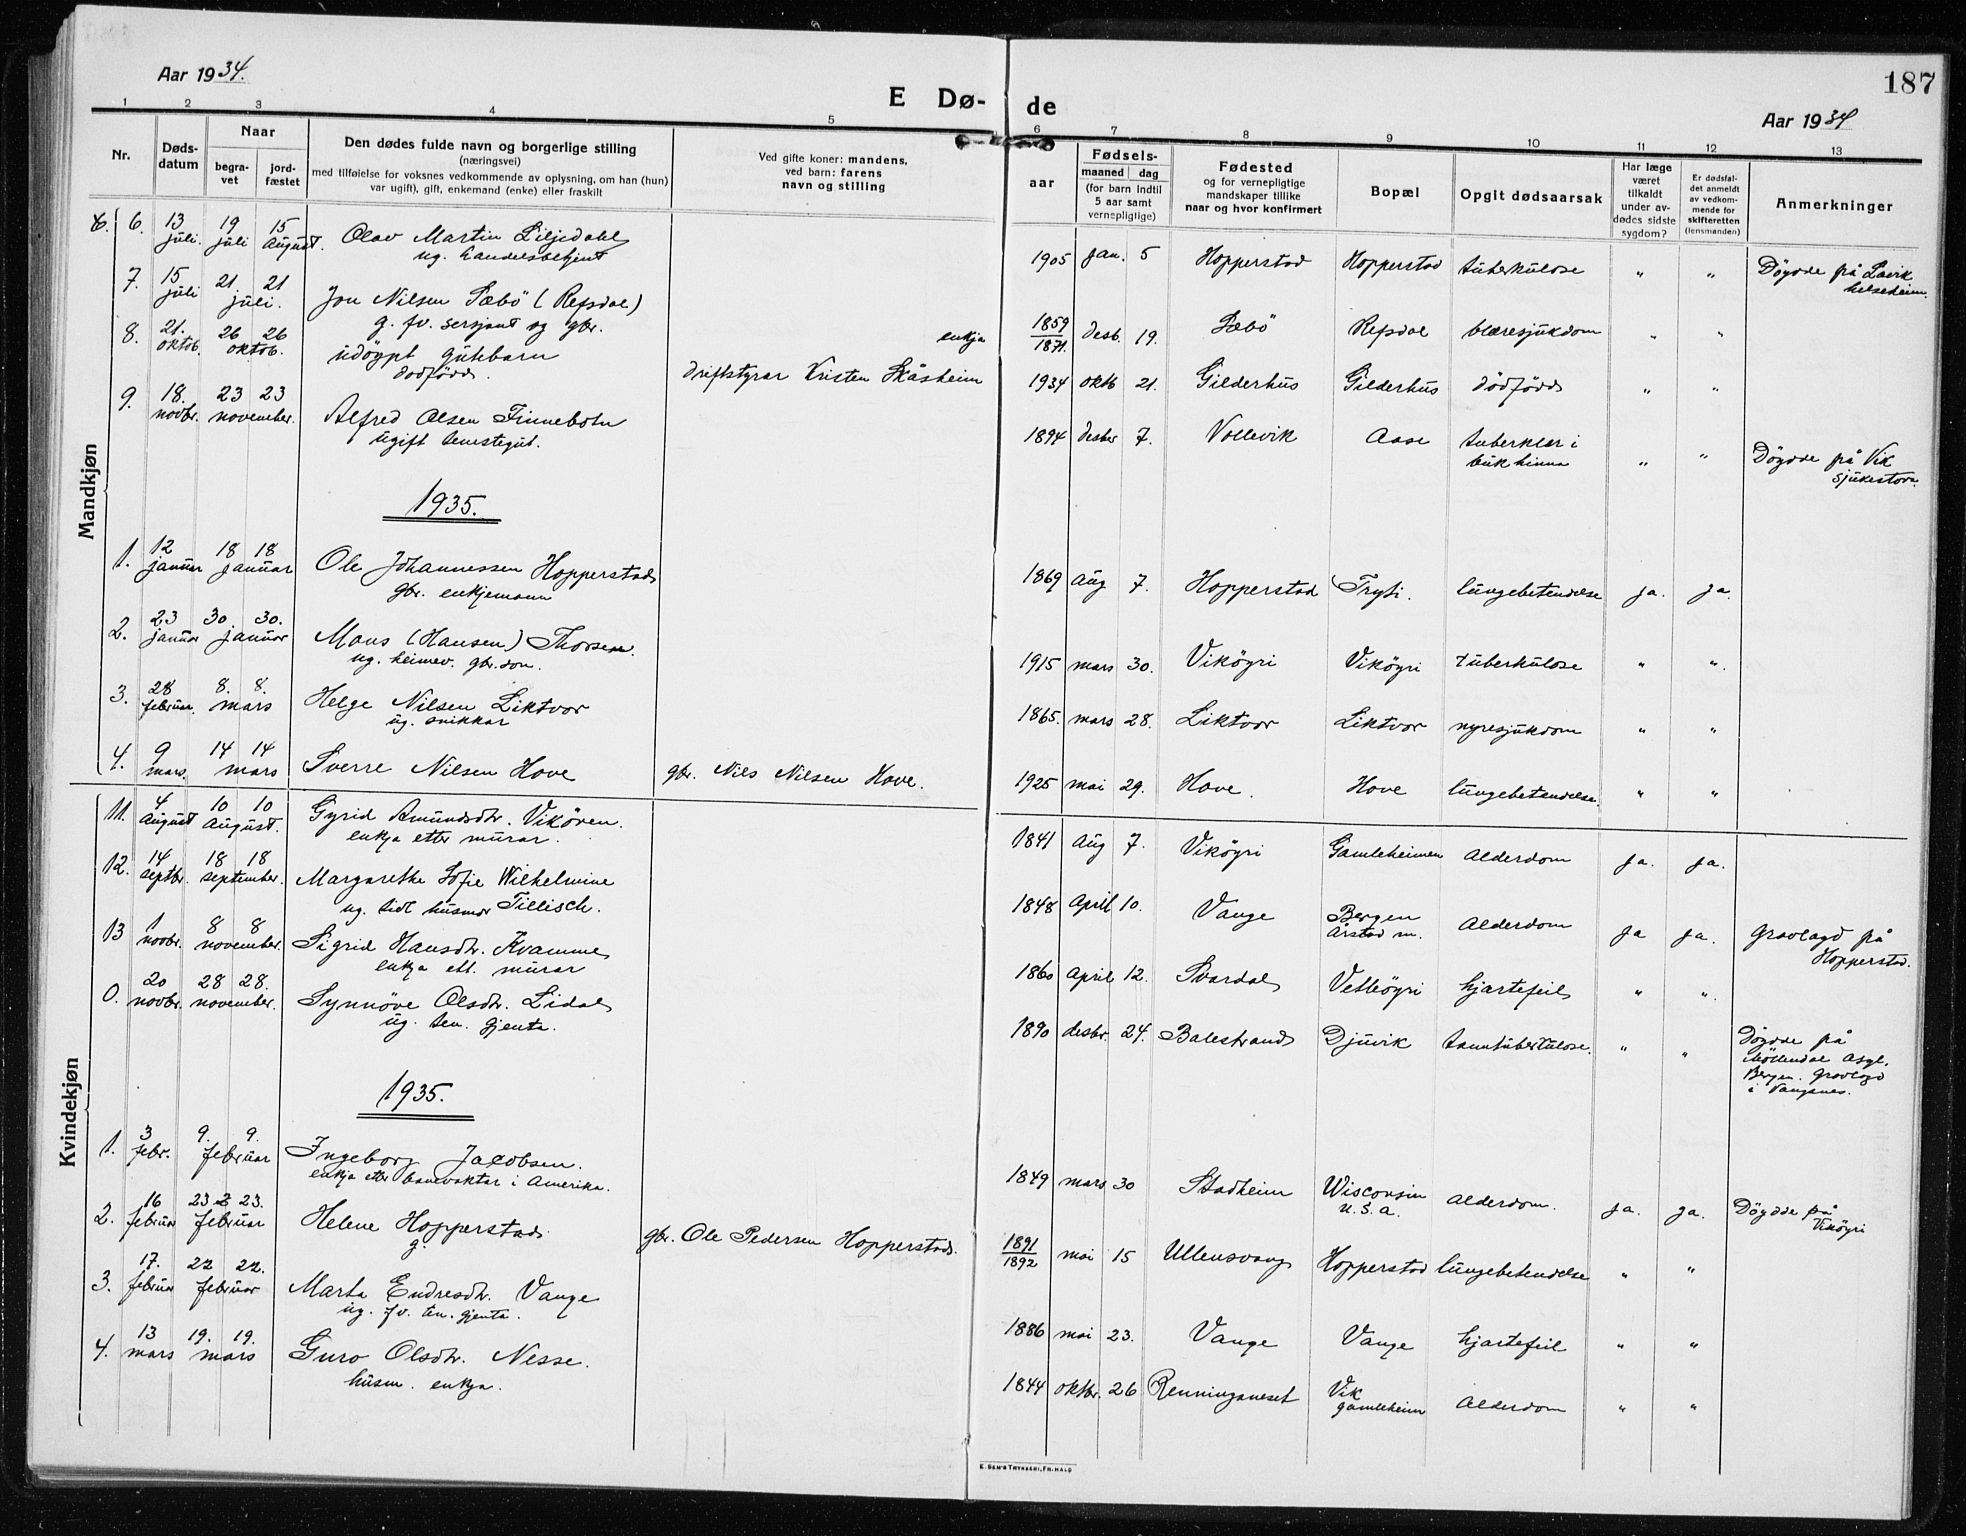 Aar 1934.
E Dø-
de
187
Aar 1934
1 2 3 4 5 6 7 8 9 10 11 12 13
Nr.
Døds-
datum
Naar
begra-
vet
jord-
fæstet
Den dødes fulde navn og borgerlige stilling
(næringsvei)
med tilføielse for voksnes vedkommende av oplysning, om han (hun)
var ugift), gift, enkemand (enke) eller fraskilt
Ved gifte koner: mandens,
ved barn: farens
navn og stilling
Fødsels-
aar
maaned dag
(for barn indtil
5 aar samt
vernepligtige)
Fødested
og for vernepligtige
mandskaper tillike
naar og hvor konfirmert
Bopæl
Opgit dødsaarsak
Har læge
været
tilkaldt
under av-
dødes sidste
sygdom?
Er dødsfal-
det anmeldt
av vedkom-
mende for
skifteretten
(lensmanden)
Anmerkninger
Mandkjøn
6. 13 juli. 19 juli 15 August. Olav Martin Liljedahl 1905 jan. 5 Hopperstad Hopperstad tuberkulose " " Döydde på Lavik
ug. handelsbetjent helseheim.
7. 15 juli 21. 21 juli. Jon Nilsen Sæbö (Refsdal)
g. fv. sersjant og gbr. enkja 1859/1871. desb. 19. Sæbö Refsdal blæresjukdom " "
8. 21. oktob. 26 26 oktob. udöypt gutebarn
dödfödd. driftstyrar Kristen Skåsheim 1934 oktb 21. Gilderhus Gilderhus dödfödd " "
9. 18. novbr. 23 23 november. Alfred Olsen Finnebotn 1894 desbr 7. Vollevik Aase tuberklar i
ugift tenestegut. bukhinna " " Döydde på Vik
sjukestova.
1935.
1. 12 januar 18 18 januar Ole Johannessen Hopperstad 1869 Aug 7. Hopperstad Tryti. lungebetendelse ja. ja.
gbr. enkjemann
2. 23 januar 30. 30. januar Mons (Hansen) Thorsen. 1915 mars 30. Viköyri Viköyri tuberkulose " "
ug. heimev. gbr. son.
3. 28 februar. 8. 8. mars Helge Nilsen Liktvor 1865. mars 28. Liktvor Liktvor nyresjukdom " "
ug. snikkar
4. 9 mars. 14 14 mars Sverre Nilsen Hove gbr. Nils Nilsen Hove. 1925 mai 29. Hove. Hove lungebetendelse. " "
Kvindekjøn
11. 4 August 10 10 August. Gyrid Amundsdtr. Vikören. 1841 Aug 7. Viköyri Gamleheimen Alderdom ja. ja.
enkja etter murar.
12. 14 septbr. 18 18 september. Margarethe Sofie Wilhelmine 1848 April 10. Vange Bergen
Årstad m. Alderdom ja ja. Gravlagd på
Hopperstad.
ug. tidl husmor Tillisch.
13 1 novbr. 8 8 november. Sigrid Hansdtr. Kvamme 1860 April 12. Svardal Vetleöyri hjartefeil " "
enkja ett. murar
0. 20 novbr. 28 28. november. Synnöve Olsdtr. Lidal 1890 desbr. 24. Balestrand Djuvik tanntuberkulose. " " Döydde på
Möllendal Asyl.
Bergen. Gravlagd
i Vangsnes.
ug. ten. gjenta.
1935.
1. 3 febr. 9. 9. februar Ingeborg Jacobsen. 1849 mars 30 Stadheim Wisconsin
U.S.A. Alderdom. ja. ja. Döydde på
Viköyri
enkja etter banevaktar i Amerika.
2. 16 februar 23 23. februar Helene Hopperstad gbr. Ole Pedersen Hopperstad. 1891/1892 mai 15 Ullensvang Hopperstad lungebetendelse " "
g.
3. 17. februar 22 22. februar Marta Endresdtr. Vange 1886 mai 23. Vange Vange hjartefeil " "
ug. fv. ten. gjenta.
4. 13 mars 19. 19. mars Guro Olsdtr. Nesse. 1844 oktbr. 26 Renninganeset Vik
gamleheim Alderdom " "
husm. enkja.
E. SEM'S TRYKKERI, FR.HALD